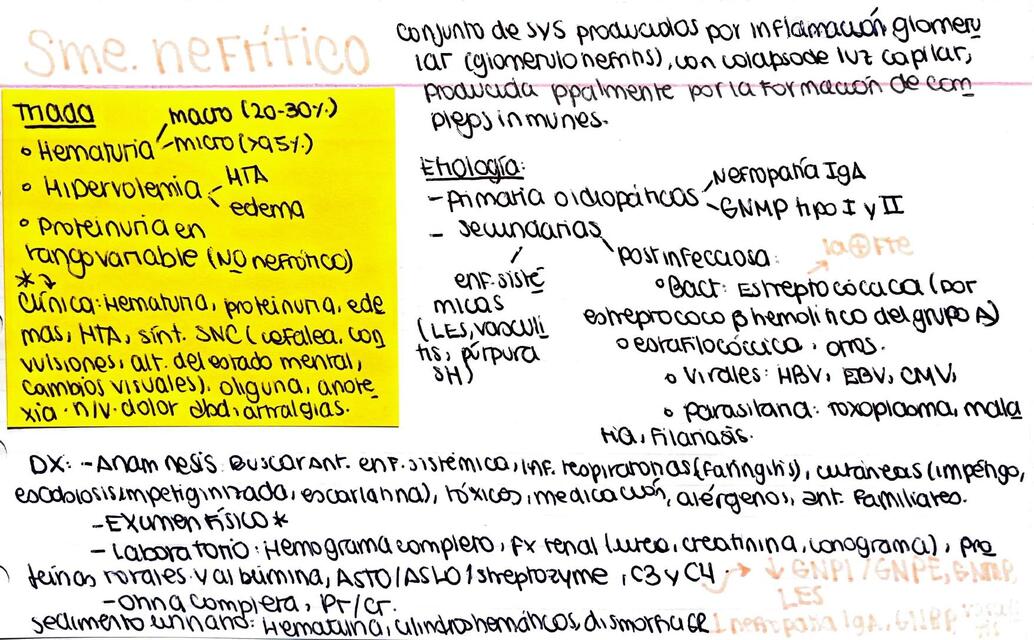 Sme. nefrítico
conjunto de sys producidos por inflamación glomeru
lar (glomerulonefritis), con colapso de luz capilar,
producida ppalmente por la formación de com
plejos inmunes.
Triada
• Hematuria macro (20-30%)
micro (>95%)
• Hipervolemia HTA
edema
• Proteinuria en
rango variable (NO nefrótico)
*
clínica: Hematuria, proteinuria, ede
mas, HTA, sínt. SNC (cefalea, con
vulsiones, alt. del estado mental,
cambios visuales). oliguria, anore
xia. n/v. dolor abd. artralgias.
Etiología:
- Primaria o idiopáticas Nefropatía IgA
GNMP tipo I y II
- secundarias
enf. sisté
micas
(LES, vasculi
tis, púrpura
SH)
Postinfecciosa: la ⊕ fte
• Bact: Estreptocóccica (por
estreptococo β hemolítico del grupo A)
o estafilocóccica, otros.
• Virales: HBV, EBV, CMV,
• parasitaria: toxoplasma, mala
ria, filariasis.
DX: - Anamnesis. Buscar ant. enf. sistémica, inf. respiratorias (faringitis), cutáneas (impétigo,
escabiosis impetiginizada, escarlatina), tóxicos, medicación, alérgenos, ant. familiares.
- Examen físico *
- Laboratorio: Hemograma completo, fx renal (urea, creatinina, ionograma), pro
teínas totales y albúmina, ASTO/ASLO/streptozyme, C3 y C4 → ↓ GNPI/GNPE, GNMP
LES
- Orina completa, Pr/Cr.
sedimento urinario: Hematuria, cilindros hemáticos, dismorfia GR
nefropatía IgA,